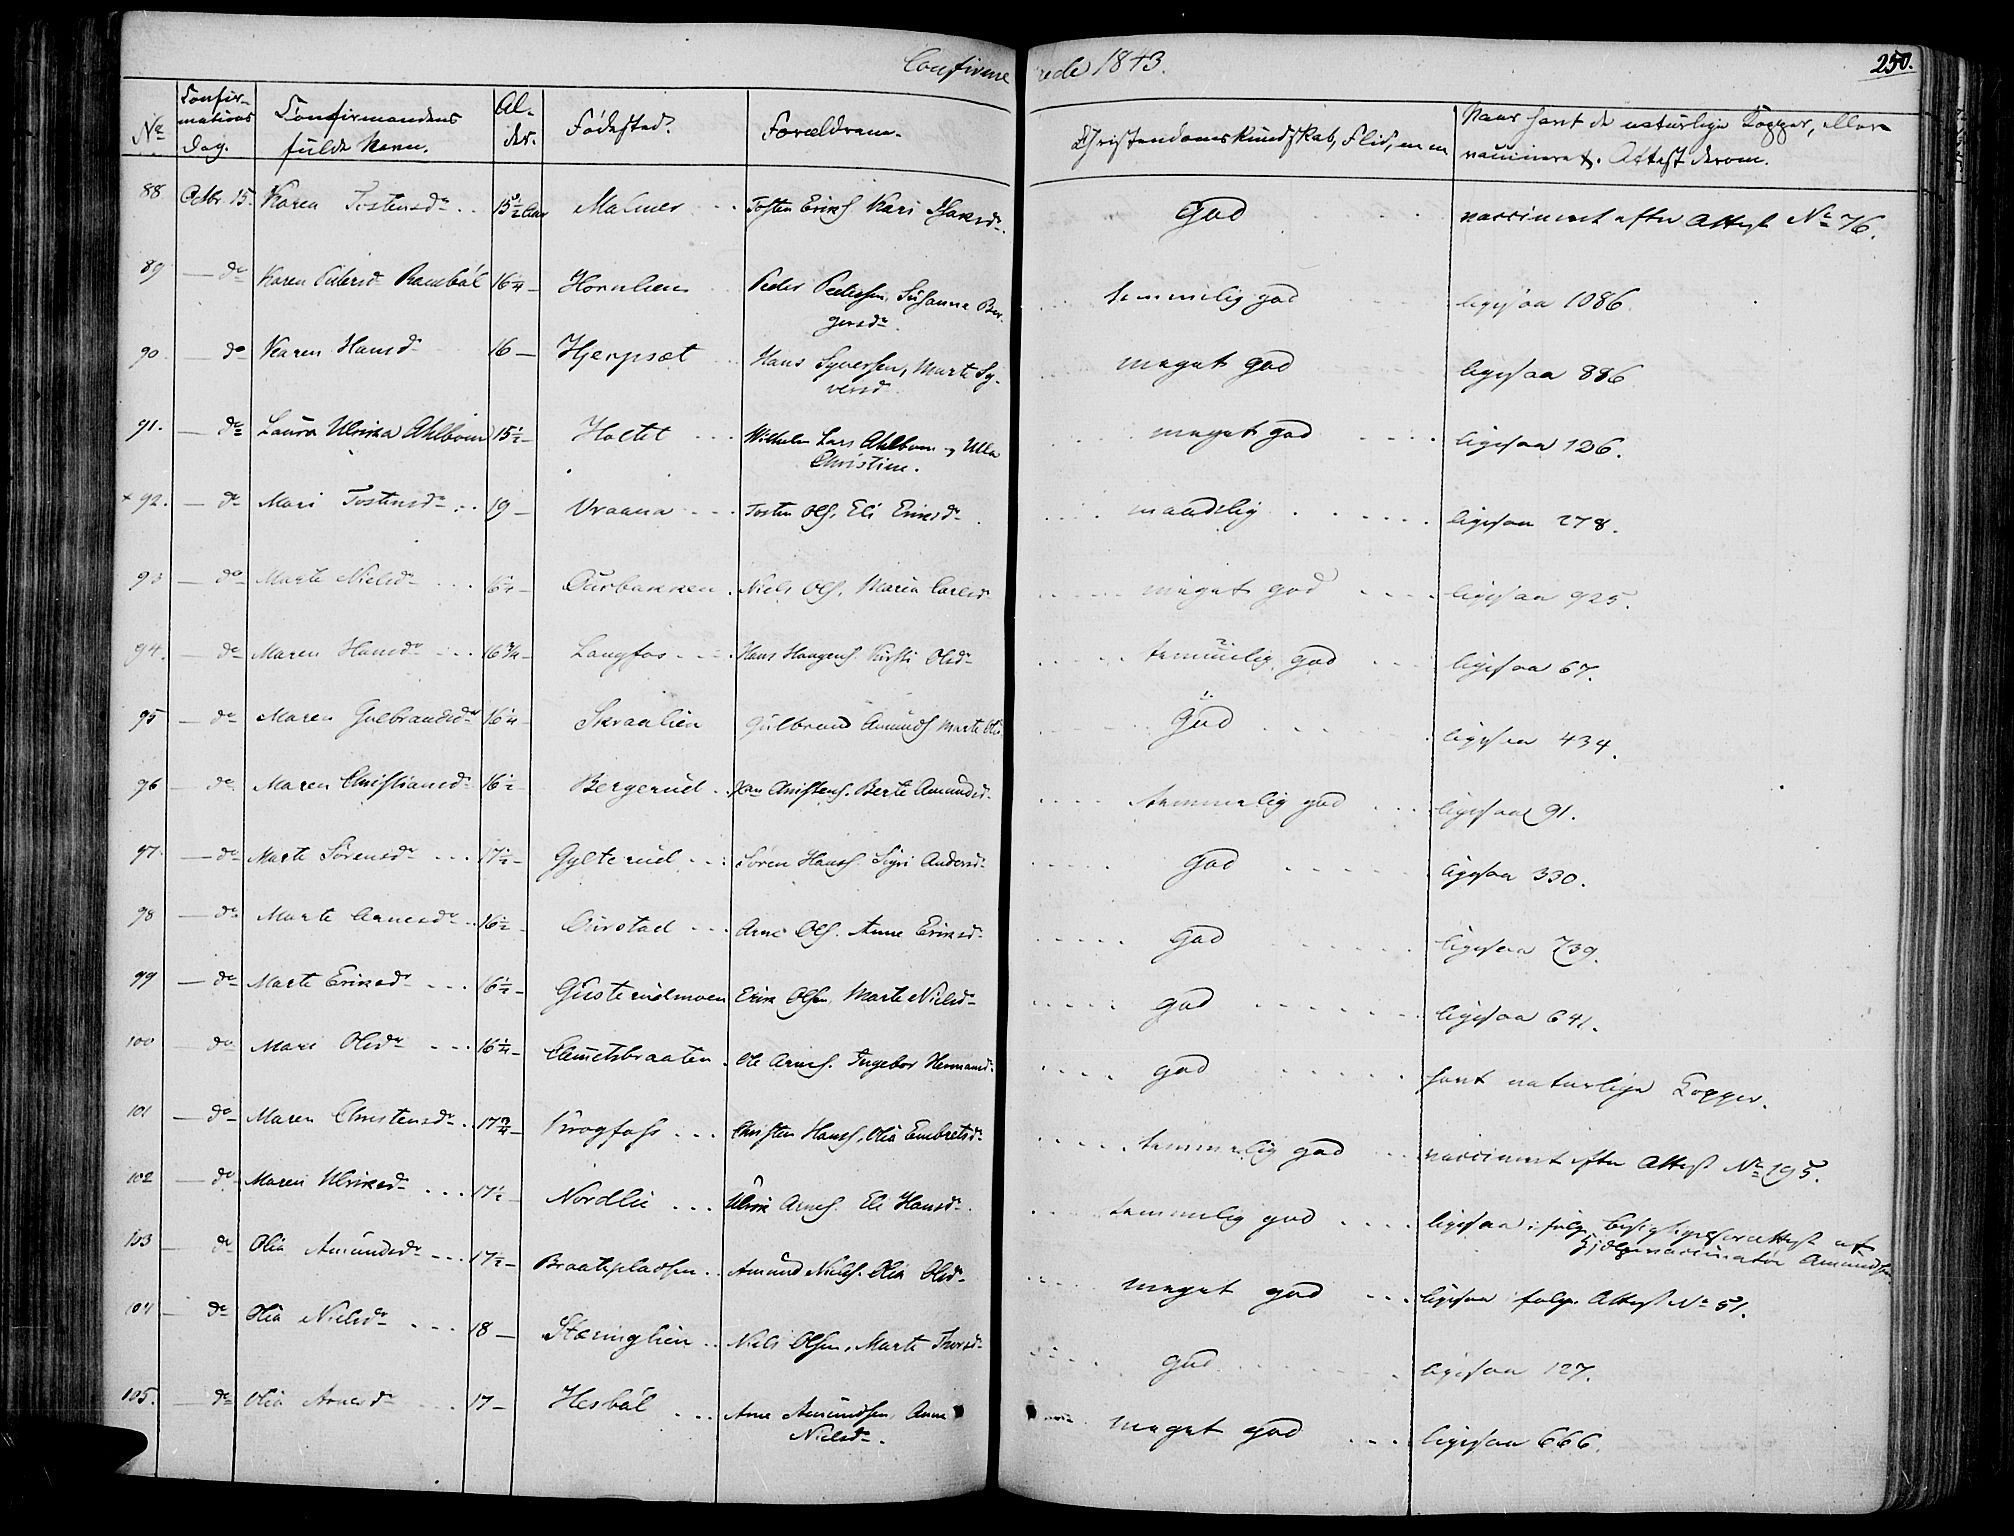 Confirmerede 1843.
250.
No Confirmations Dag. Confirmandens fulde Navn. Alder. Fødested. Forældrene. Christendomskundskab, Flid, m m Naar havt de naturlige Kopper, eller vaccineret. Attest derom.
88 Octbr. 15. Karen Tostensdr 15 1/2 Aar Malmer Tosten Eriks. Kari Isaksdr god vaccineret efter Attest No 76.
89 do Karen Pedersdr Rambøl 16 1/4 Hornlien Peder Pedersen, Susanna Bergersdr temmelig god ligesaa 1086.
90. do Karen Hansdr 16 Hjerpset Hans Syversen, Marte Syversd. meget god ligesaa 886
91. do Laura Ulrika Ahlbom 15 1/2 Holtet Wilhelm Lars Ahlbom og Ulla Christine. meget god ligesaa 126.
+ 92. do Mari Tostensdr 19 Vraana Tosten Ols. Eli Eriksdr maadelig ligesaa 278.
93 do Marte Nielsdr 16 1/2 Ourbakken Niels Ols. Maria Carlsd. meget god ligesaa 925.
94. do Maren Hansdr 16 3/4 Langfos Hans Haagens. Kirsti Olsdr temmelig god ligesaa 67.
95 do Maren Gulbrandsdr 16 1/4 Skraalien Gulbrand Amunds. Marte Olsd. God ligesaa 434.
96 do Maren Christiansdr 16 1/2 Bergerud Christens. Berte Amundsd. temmelig god ligesaa 91.
97. do Marte Sørensdr 17 1/2 Gylterud Søren Hans. Sigri Andersdr god ligesaa 330.
98 do Marte Arnesdr 16 1/2 Ourstad Arne Ols. Anne Eriksdr God ligesaa 739.
99 do Marte Eriksdr 16 1/2 Gusterudmoen Erik Olsen Marte Nielsdr god ligesaa 641.
100 do Mari Olsdr 16 1/4 Klemetsbraaten Ole Arnes. Ingebor Hermansd. god havt naturlige Kopper.
101 do Maren Christensdr 17 3/4 Krogfoss Christen Hans. Olia Embretsdr temmelig god vaccineret efter Attest No 195.
102 do Maren Ulriksdr 17 1/2 Nordlie Ulrik Arnes. Eli Hansdr temmelig god ligesaa ifølge Besigtigelsesattest af Hjelpevaccinatør Amundsen
103 do Olia Amundsdr 17 1/2 Braatepladsen Amund Niels. Olia Olsdr meget god ligesaa ifølge Attest No 51.
104 do Olia Nielsdr 18 Stæringlien Niels Olsen, Marte Thorsdr god ligesaa 127.
105. do Olia Arnesdr 17 Hesbøl Arne Amundsen Anne Nielsdr. meget god ligesaa 666.